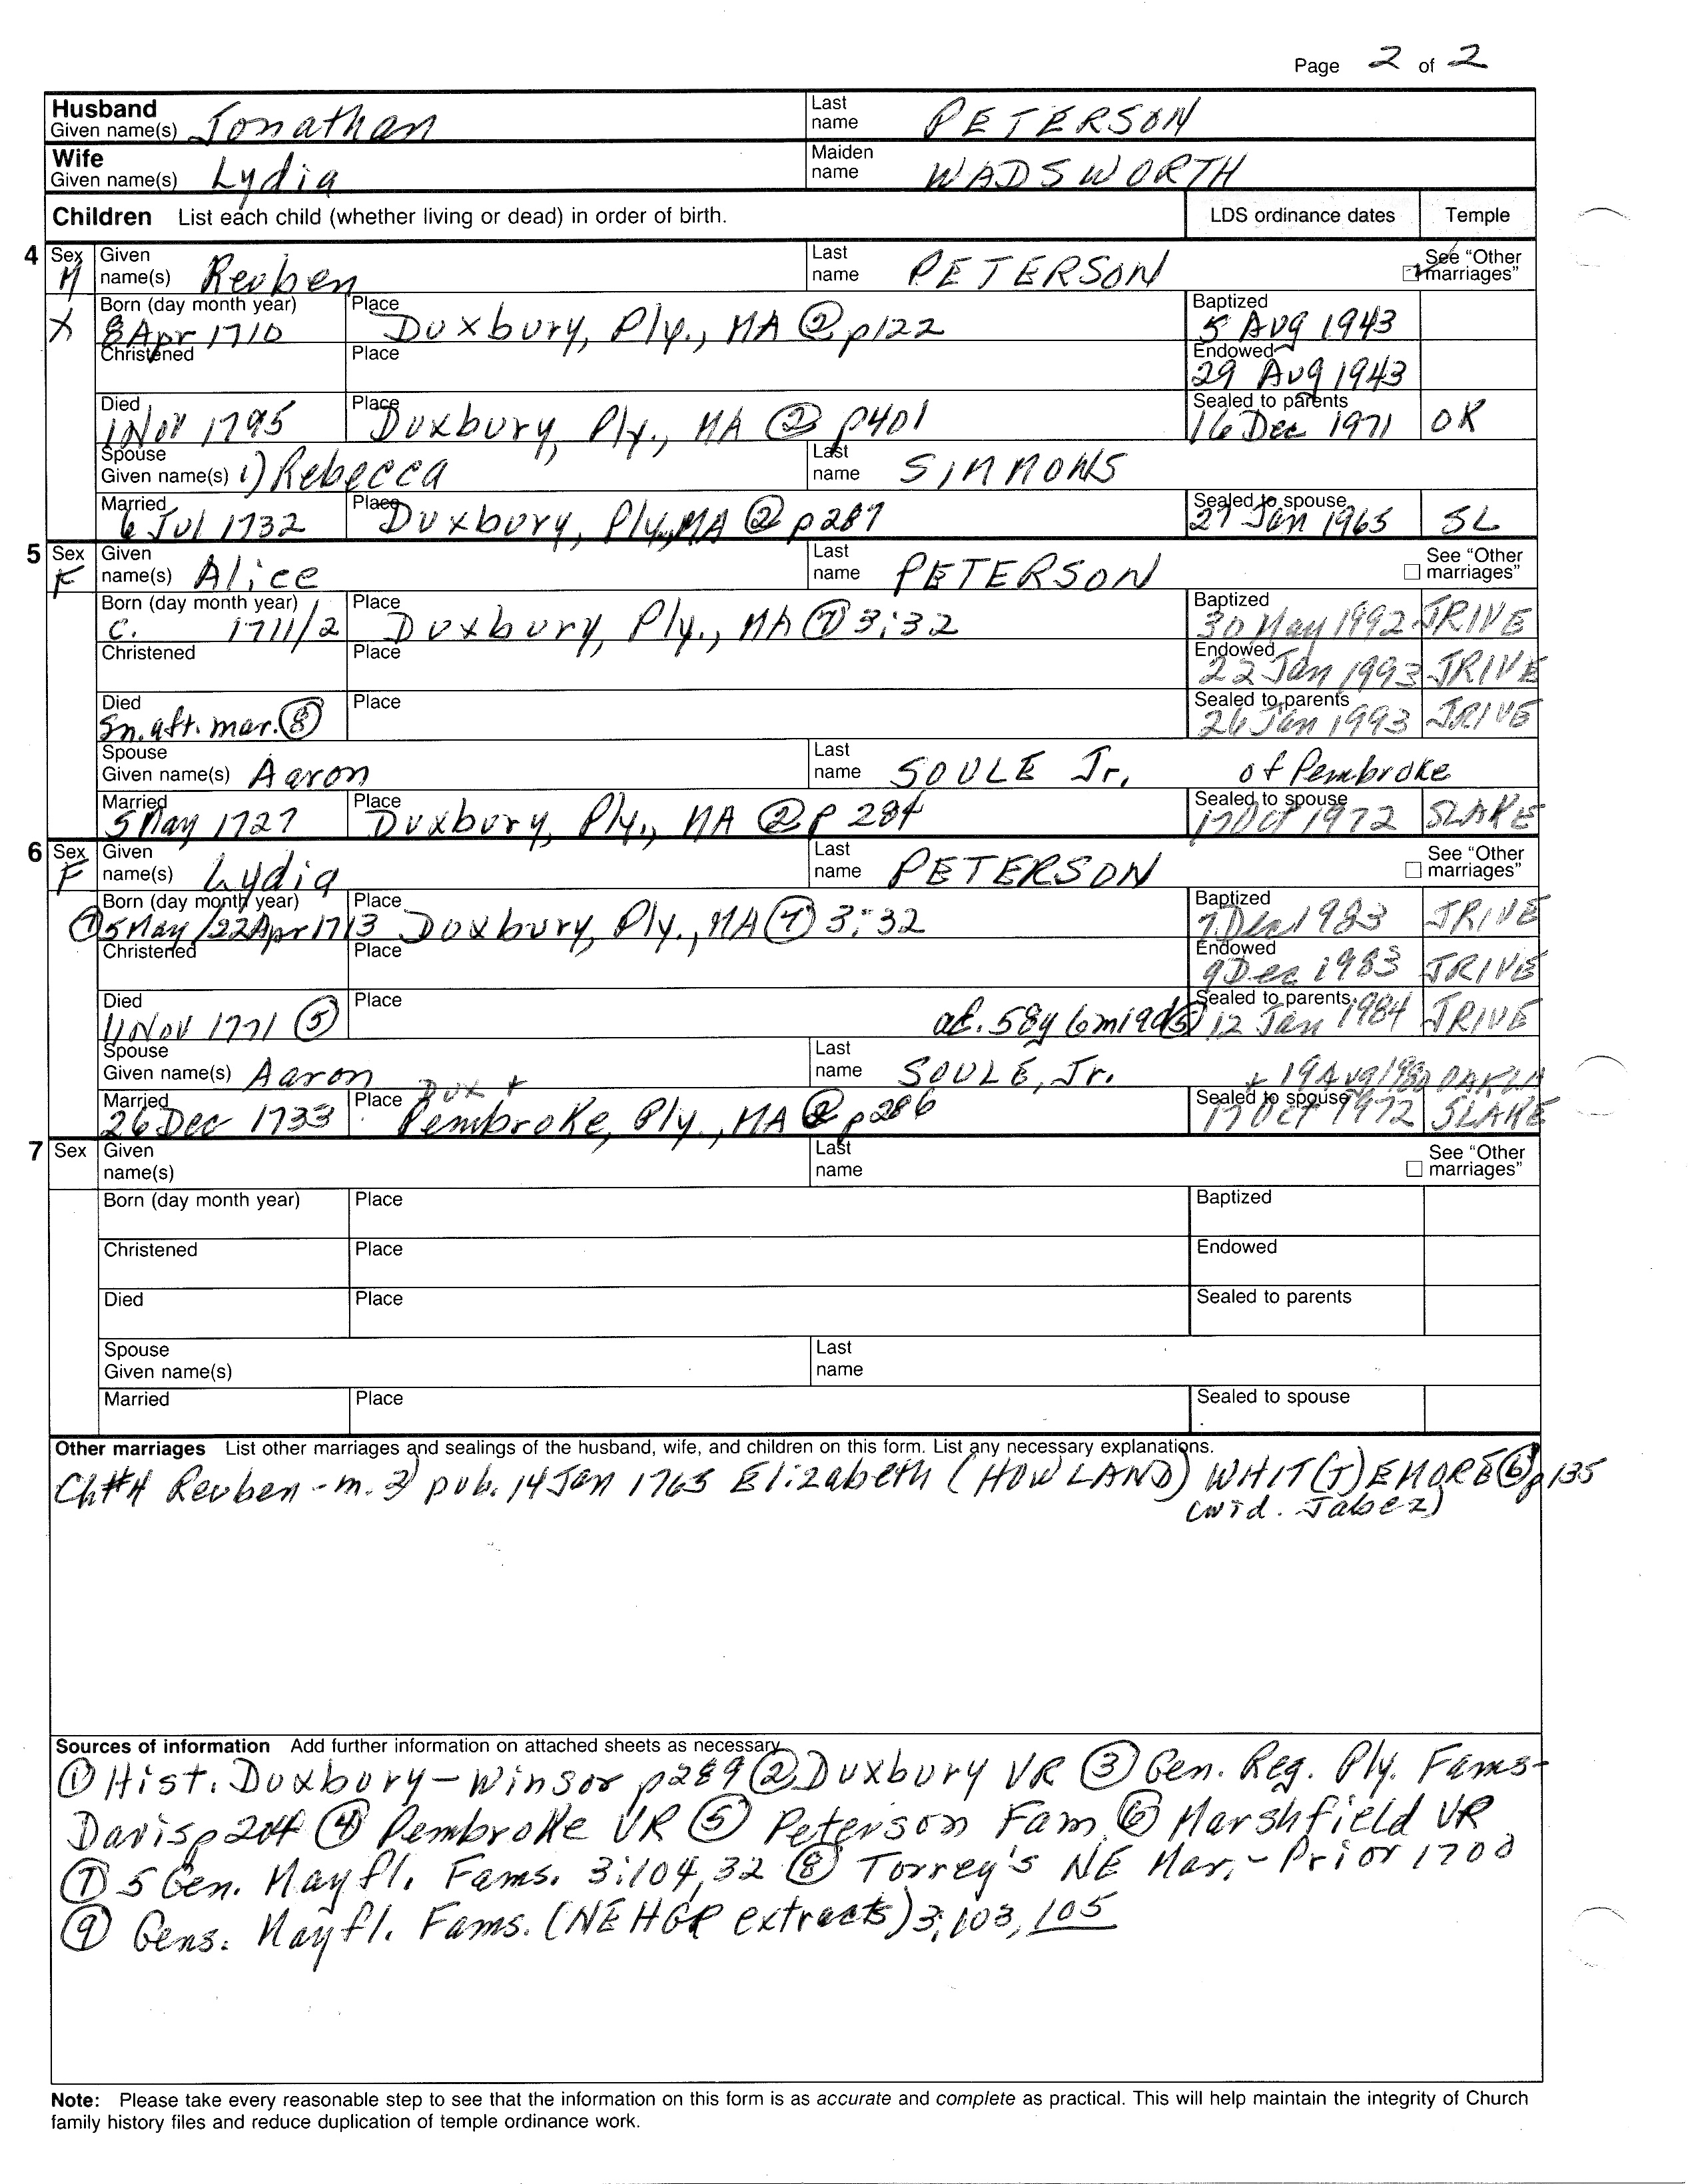 Page 2 of 2
Husband Given name(s) Jonathan Last name PETERSON
Wife Given name(s) Lydia Maiden name WADSWORTH
Children List each child (whether living or dead) in order of birth. LDS ordinance dates Temple
4 Sex M Given name(s) Reuben Last name PETERSON See "Other marriages"
X Born (day month year) 8 Apr 1710 Place Duxbury, Ply., MA ② p122 Baptized 5 Aug 1943
Christened Place Endowed 29 Aug 1943
Died 1 Nov 1795 Place Duxbury, Ply., MA ② p401 Sealed to parents 16 Dec 1971 OK
Spouse Given name(s) 1) Rebecca Last name SIMMONS
Married 6 Jul 1732 Place Duxbury, Ply., MA ② p287 Sealed to spouse 27 Jan 1965 SL
5 Sex F Given name(s) Alice Last name PETERSON See "Other marriages"
Born (day month year) c. 1711/2 Place Duxbury, Ply., MA ⑦ 3:32 Baptized 30 May 1992 JRIVE
Christened Place Endowed 22 Jan 1993 JRIVE
Died Sn. aft. mar. ⑧ Place Sealed to parents 26 Jan 1993 JRIVE
Spouse Given name(s) Aaron Last name SOULE Jr. of Pembroke
Married 5 May 1727 Place Duxbury, Ply., MA ② p 284 Sealed to spouse 17 Oct 1972 SLAKE
6 Sex F Given name(s) Lydia Last name PETERSON See "Other marriages"
Born (day month year) ⑦ 5 May/22 Apr 1713 Place Duxbury, Ply., MA ⑦ 3:32 Baptized 7 Dec 1983 JRIVE
Christened Place Endowed 9 Dec 1983 JRIVE
Died 11 Nov 1771 ⑤ Place ae. 58y 6m 19d ⑤ Sealed to parents 12 Jan 1984 JRIVE
Spouse Given name(s) Aaron Last name SOULE, Jr. + 19 Aug 1980 OAKLA
Married 26 Dec 1733 Place Dux + Pembroke, Ply., MA ② p286 Sealed to spouse 17 Oct 1972 SLAKE
7 Sex Given name(s) Last name See "Other marriages"
Born (day month year) Place Baptized
Christened Place Endowed
Died Place Sealed to parents
Spouse Given name(s) Last name
Married Place Sealed to spouse
Other marriages List other marriages and sealings of the husband, wife, and children on this form. List any necessary explanations.
Ch#4 Reuben - m. 2) pub. 14 Jan 1763 Elizabeth (HOWLAND) WHIT(T)EMORE ⑥ p135
(wid. Jabez)
Sources of information Add further information on attached sheets as necessary
① Hist. Duxbury-Winsor p289 ② Duxbury VR ③ Gen. Reg. Ply. Fams-
Davis p204 ④ Pembroke VR ⑤ Peterson Fam. ⑥ Marshfield VR
⑦ 5 Gen. Mayfl. Fams. 3:104,32 ⑧ Torrey's NE Mar.-Prior 1700
⑨ Gens. Mayfl. Fams. (NEHGR extracts) 3:103, 105
Note: Please take every reasonable step to see that the information on this form is as accurate and complete as practical. This will help maintain the integrity of Church
family history files and reduce duplication of temple ordinance work.